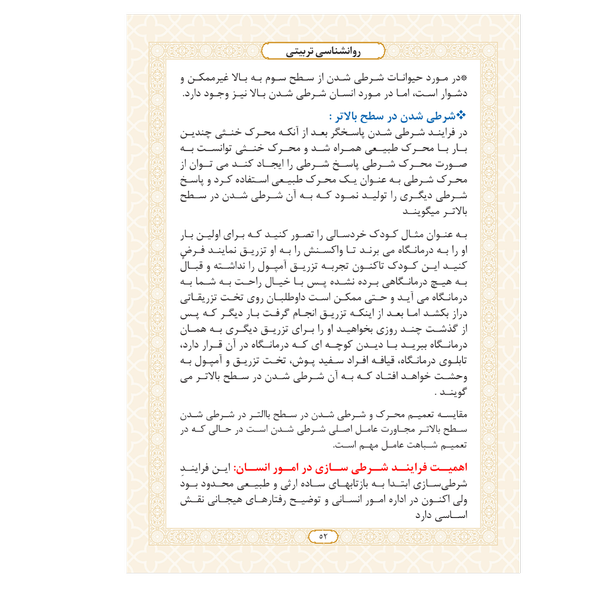 روانشناسی تربیتی
*در مورد حیوانات شرطی شدن از سطح سوم به بالا غیرممکن و
دشوار است، اما در مورد انسان شرطی شدن بالا نیز وجود دارد.
❖شرطی شدن در سطح بالاتر :
در فرایند شرطی شدن پاسخگر بعد از آنکه محرک خنثی چندین
بار با محرک طبیعی همراه شد و محرک خنثی توانست به
صورت محرک شرطی پاسخ شرطی را ایجاد کند می توان از
محرک شرطی به عنوان یک محرک طبیعی استفاده کرد و پاسخ
شرطی دیگری را تولید نمود که به آن شرطی شدن در سطح
بالاتر میگویند
به عنوان مثال کودک خردسالی را تصور کنید که برای اولین بار
او را به درمانگاه می برند تا واکسنش را به او تزریق نمایند فرض
کنید این کودک تاکنون تجربه تزریق آمپول را نداشته و قبال
به هیچ درمانگاهی برده نشده پس با خیال راحت به شما به
درمانگاه می آید و حتی ممکن است داوطلبان روی تخت تزریقاتی
دراز بکشد اما بعد از اینکه تزریق انجام گرفت بار دیگر که پس
از گذشت چند روزی بخواهید او را برای تزریق دیگری به همان
درمانگاه ببرید با دیدن کوچه ای که درمانگاه در آن قرار دارد،
تابلوی درمانگاه، قیافه افراد سفید پوش، تخت تزریق و آمپول به
وحشت خواهد افتاد که به آن شرطی شدن در سطح بالاتر می
گویند .
مقایسه تعمیم محرک و شرطی شدن در سطح باالتر در شرطی شدن
سطح بالاتر مجاورت عامل اصلی شرطی شدن است در حالی که در
تعمیم شباهت عامل مهم است.
اهمیت فرایند شرطی سازی در امور انسان: این فرایند
شرطی‌سازی ابتدا به بازتابهای ساده ارثی و طبیعی محدود بود
ولی اکنون در اداره امور انسانی و توضیح رفتارهای هیجانی نقش
اساسی دارد
۵۲